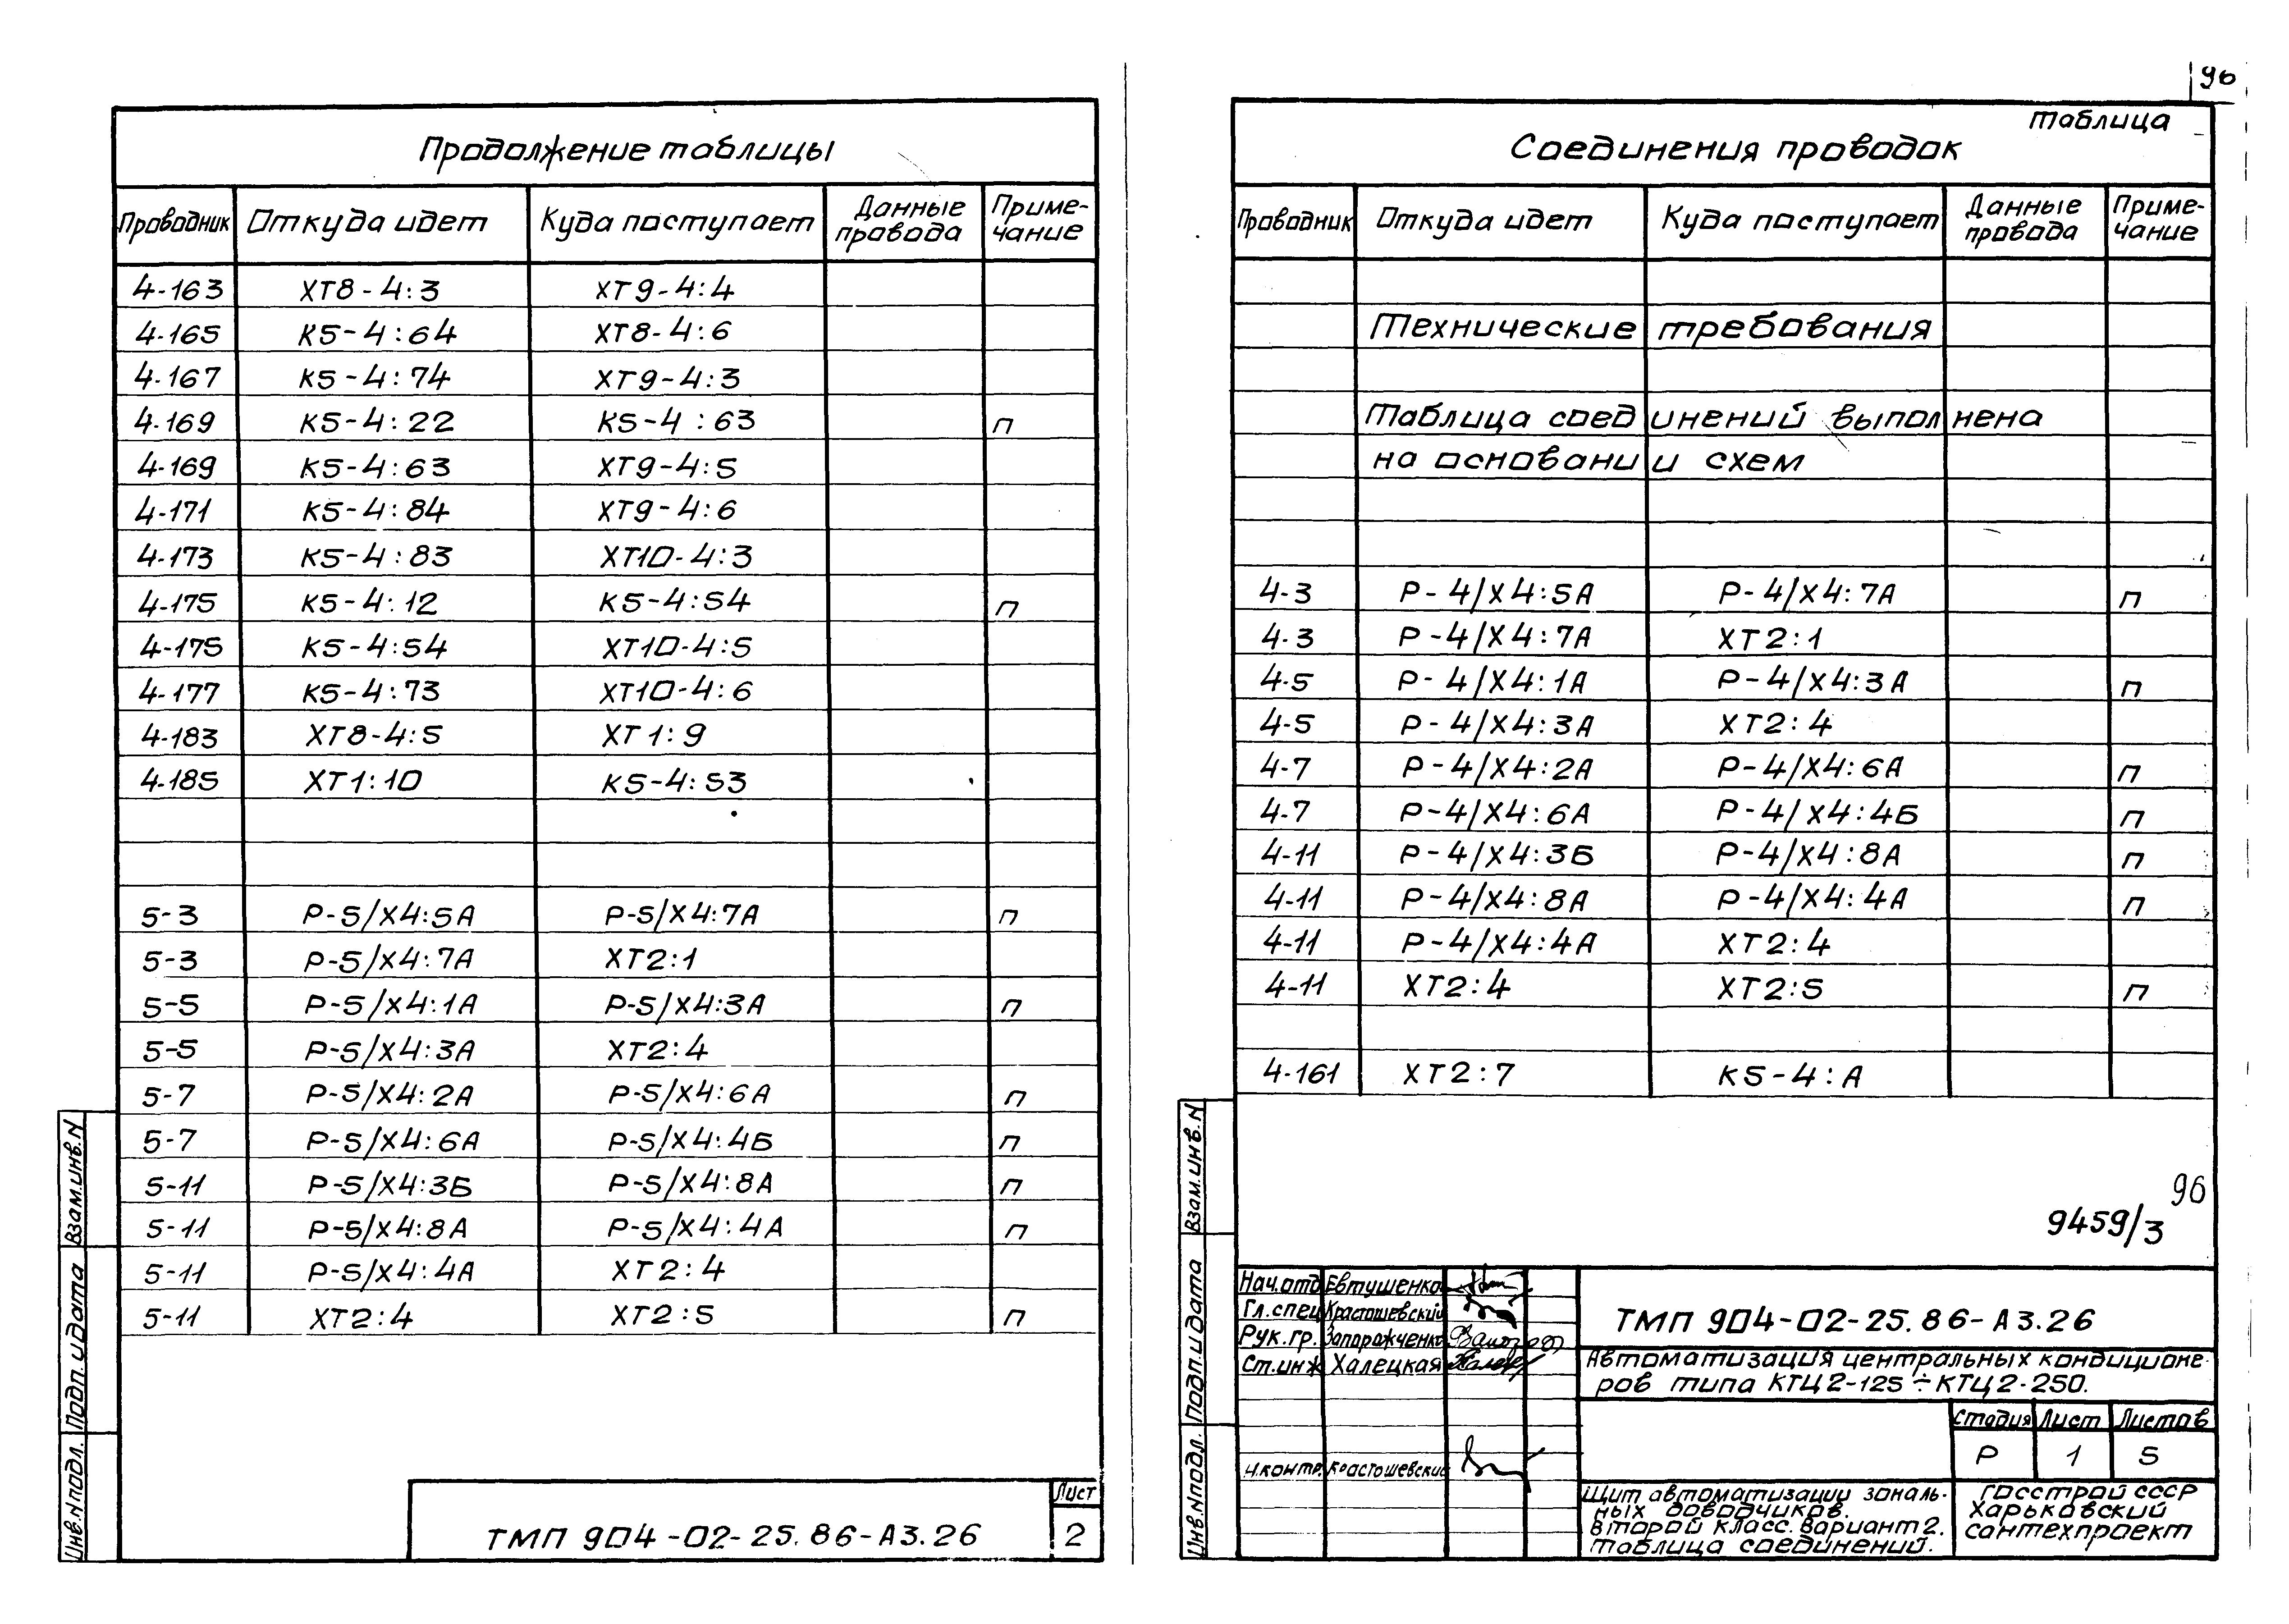 Продолжение таблицы
Проводник Откуда идет Куда поступает Данные провода Приме-чание
4-163 ХТ8-4:3 ХТ9-4:4
4-165 К5-4:64 ХТ8-4:6
4-167 К5-4:74 ХТ9-4:3
4-169 К5-4:22 К5-4:63 п
4-169 К5-4:63 ХТ9-4:5
4-171 К5-4:84 ХТ9-4:6
4-173 К5-4:83 ХТ10-4:3
4-175 К5-4:12 К5-4:54 п
4-175 К5-4:54 ХТ10-4:5
4-177 К5-4:73 ХТ10-4:6
4-183 ХТ8-4:5 ХТ1:9
4-185 ХТ1:10 К5-4:53
5-3 Р-5/Х4:5А Р-5/Х4:7А п
5-3 Р-5/Х4:7А ХТ2:1
5-5 Р-5/Х4:1А Р-5/Х4:3А п
5-5 Р-5/Х4:3А ХТ2:4
5-7 Р-5/Х4:2А Р-5/Х4:6А п
5-7 Р-5/Х4:6А Р-5/Х4:4Б п
5-11 Р-5/Х4:3Б Р-5/Х4:8А п
5-11 Р-5/Х4:8А Р-5/Х4:4А п
5-11 Р-5/Х4:4А ХТ2:4
5-11 ХТ2:4 ХТ2:5 п
Взам.инв.N
Подп.и дата
Инв.N подл.
ТМП 904-02-25.86-А3.26
Лист
2
96
таблица
Соединения проводок
Проводник Откуда идет Куда поступает Данные провода Приме-чание
Технические требования
Таблица соединений выполнена
на основании схем
4-3 Р-4/Х4:5А Р-4/Х4:7А п
4-3 Р-4/Х4:7А ХТ2:1
4-5 Р-4/Х4:1А Р-4/Х4:3А п
4-5 Р-4/Х4:3А ХТ2:4
4-7 Р-4/Х4:2А Р-4/Х4:6А п
4-7 Р-4/Х4:6А Р-4/Х4:4Б п
4-11 Р-4/Х4:3Б Р-4/Х4:8А п
4-11 Р-4/Х4:8А Р-4/Х4:4А п
4-11 Р-4/Х4:4А ХТ2:4
4-11 ХТ2:4 ХТ2:5 п
4-161 ХТ2:7 К5-4:А
96
9459/3
Взам.инв.N
Подп.и дата
Инв.N подл.
Нач.отд Евтушенко
Гл.спец Красташевский
Рук.гр. Запорожченко
Ст.инж Халецкая
н.контр. Красташевский
ТМП 904-02-25.86-А3.26
Автоматизация центральных кондиционе-
ров типа КТЦ2-125÷КТЦ2-250.
Стадия Лист Листов
Р 1 5
Щит автоматизации зональ-
ных доводчиков.
Второй класс. Вариант 2.
Таблица соединений.
Госстрой СССР
Харьковский
сантехпроект